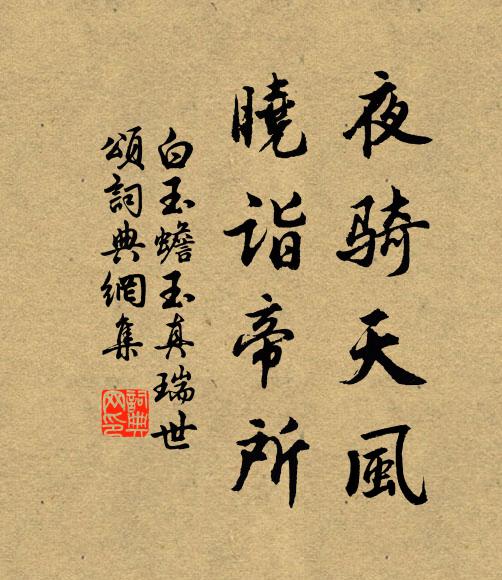 夜骑天風
曉诣帝所
白玉蟾玉真瑞世
頌詞典網集
詞典网印